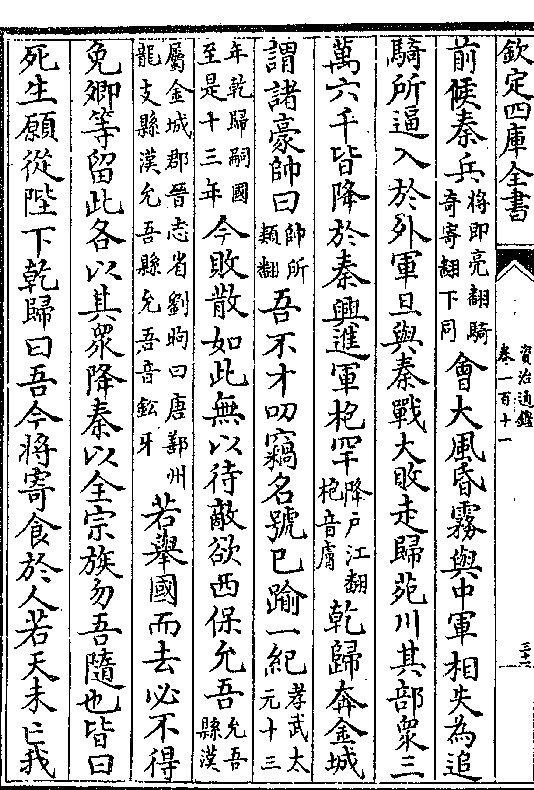 欽定四庫全書
資治通鑑
卷一百十一
前候秦兵將即亮翻騎奇寄翻下同會大風昏霧與中軍相失為追
騎所逼入於外軍旦與秦戰大敗走歸苑川其部衆三
萬六千皆降於秦興進軍枹罕降戶江翻枹音膚乾歸奔金城
謂諸豪帥曰帥所類翻吾不才叨竊名號已踰一紀孝武太元十三
年乾歸嗣國至是十三年今敗散如此無以待敵欲西保允吾允吾縣漢
屬金城郡晉志省劉昫曰唐鄯州龍支縣漢允吾縣允吾音鈆牙若舉國而去必不得
免卿等留此各以其衆降秦以全宗族勿吾隨也皆曰
死生願從陛下乾歸曰吾今將寄食於人若天未亡我